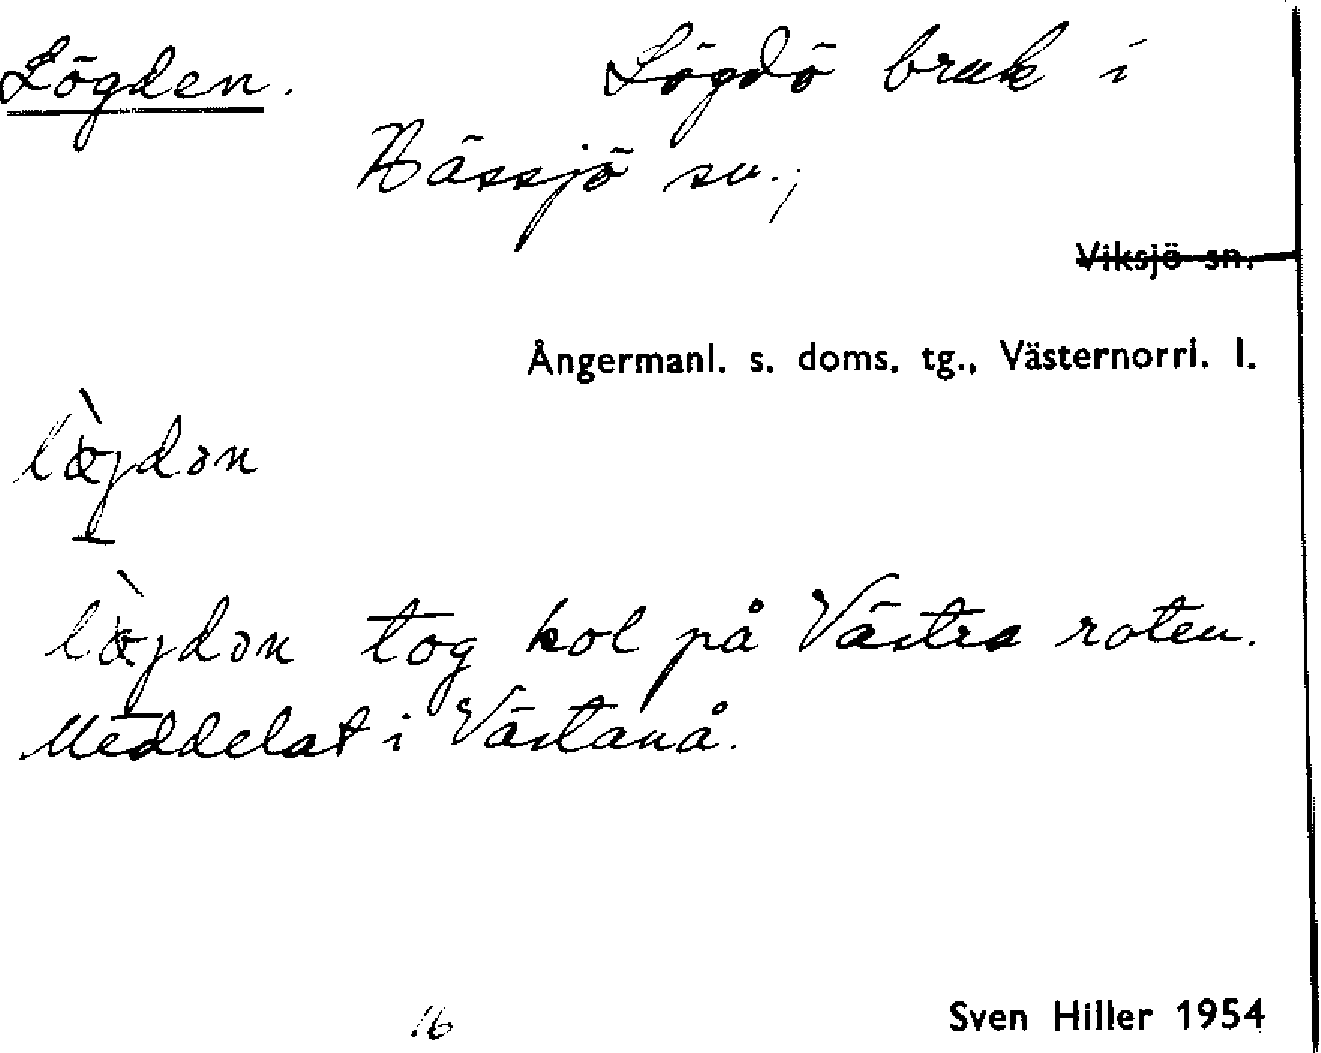 Lögden. Lögdö bruk i
Hässjö sn.;
Viksjö sn.
Ångermanl. s. doms. tg., Västernorrl. l.
lœ̀gdən
lœ̀gdən tog kol på Västra roten.
Meddelat i Västanå.
16 Sven Hiller 1954